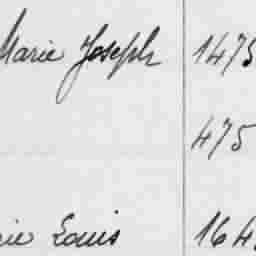 Marie Joseph 1475
475
rie Louis 164